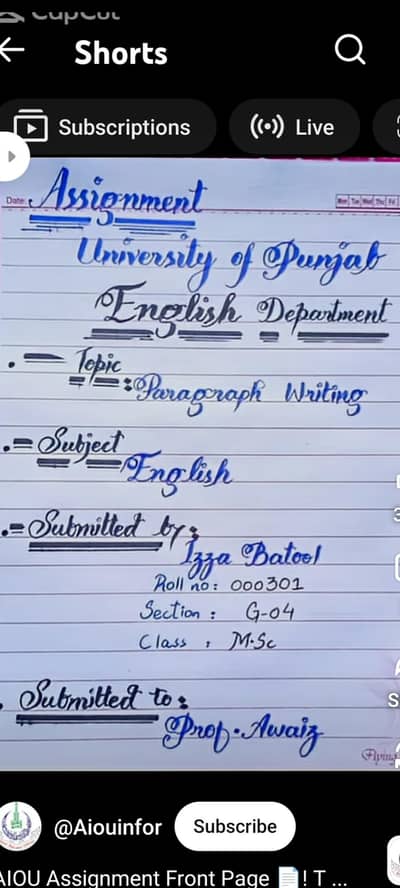 CapCut
Shorts
Subscriptions
Live
Date:
Mon Tue Wed Thu Fri
Assignment
University of Punjab
English Department
Topic
:Paragraph Writing
Subject
English
Submitted by:
Izza Batool
Roll no: 000301
Section : G-04
Class : M.Sc
Submitted to:
Prof. Awaiz
@Aiouinfor
Subscribe
AIOU Assignment Front Page 📄! T ...